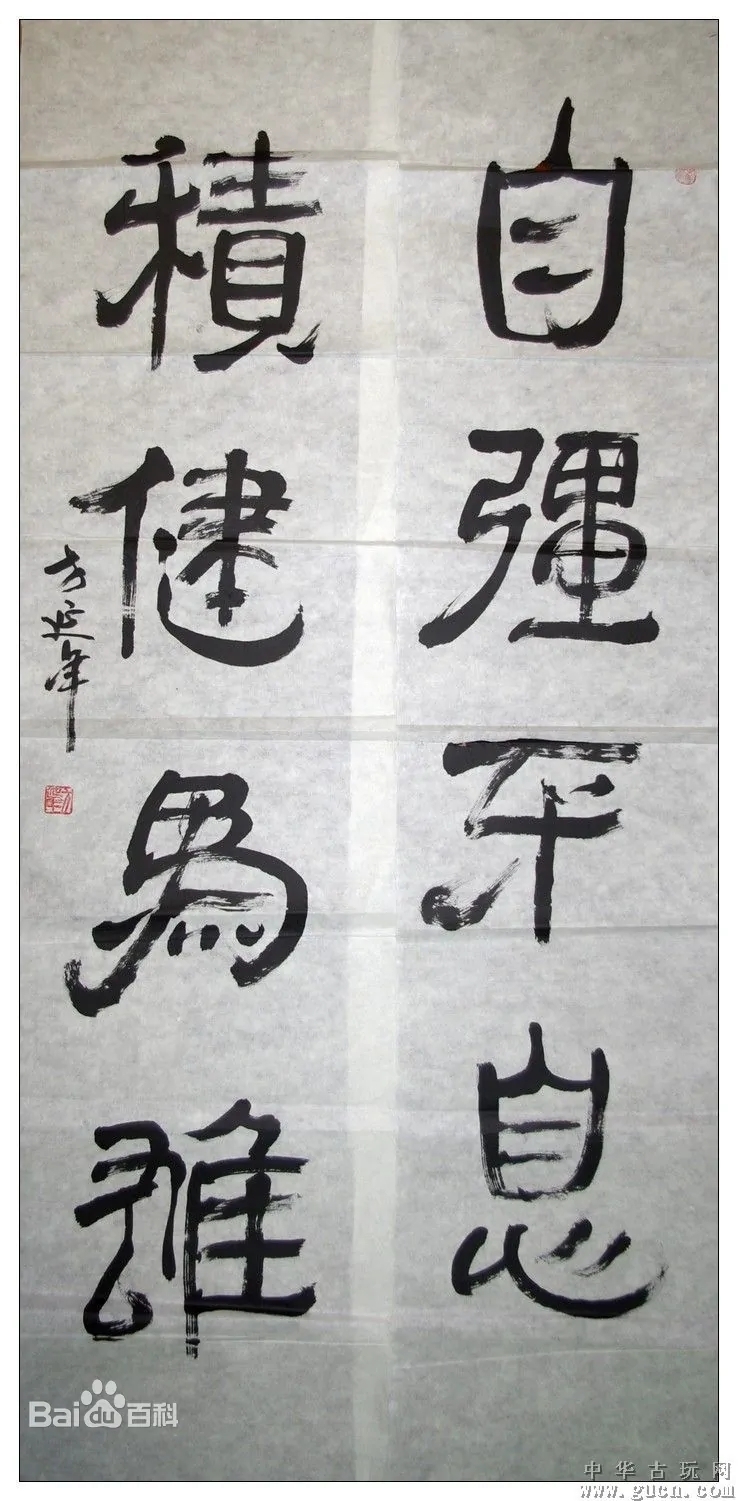 自彊不息
積健為雄
方延年
Bai du 百科
中华古玩网
www.gucn.com